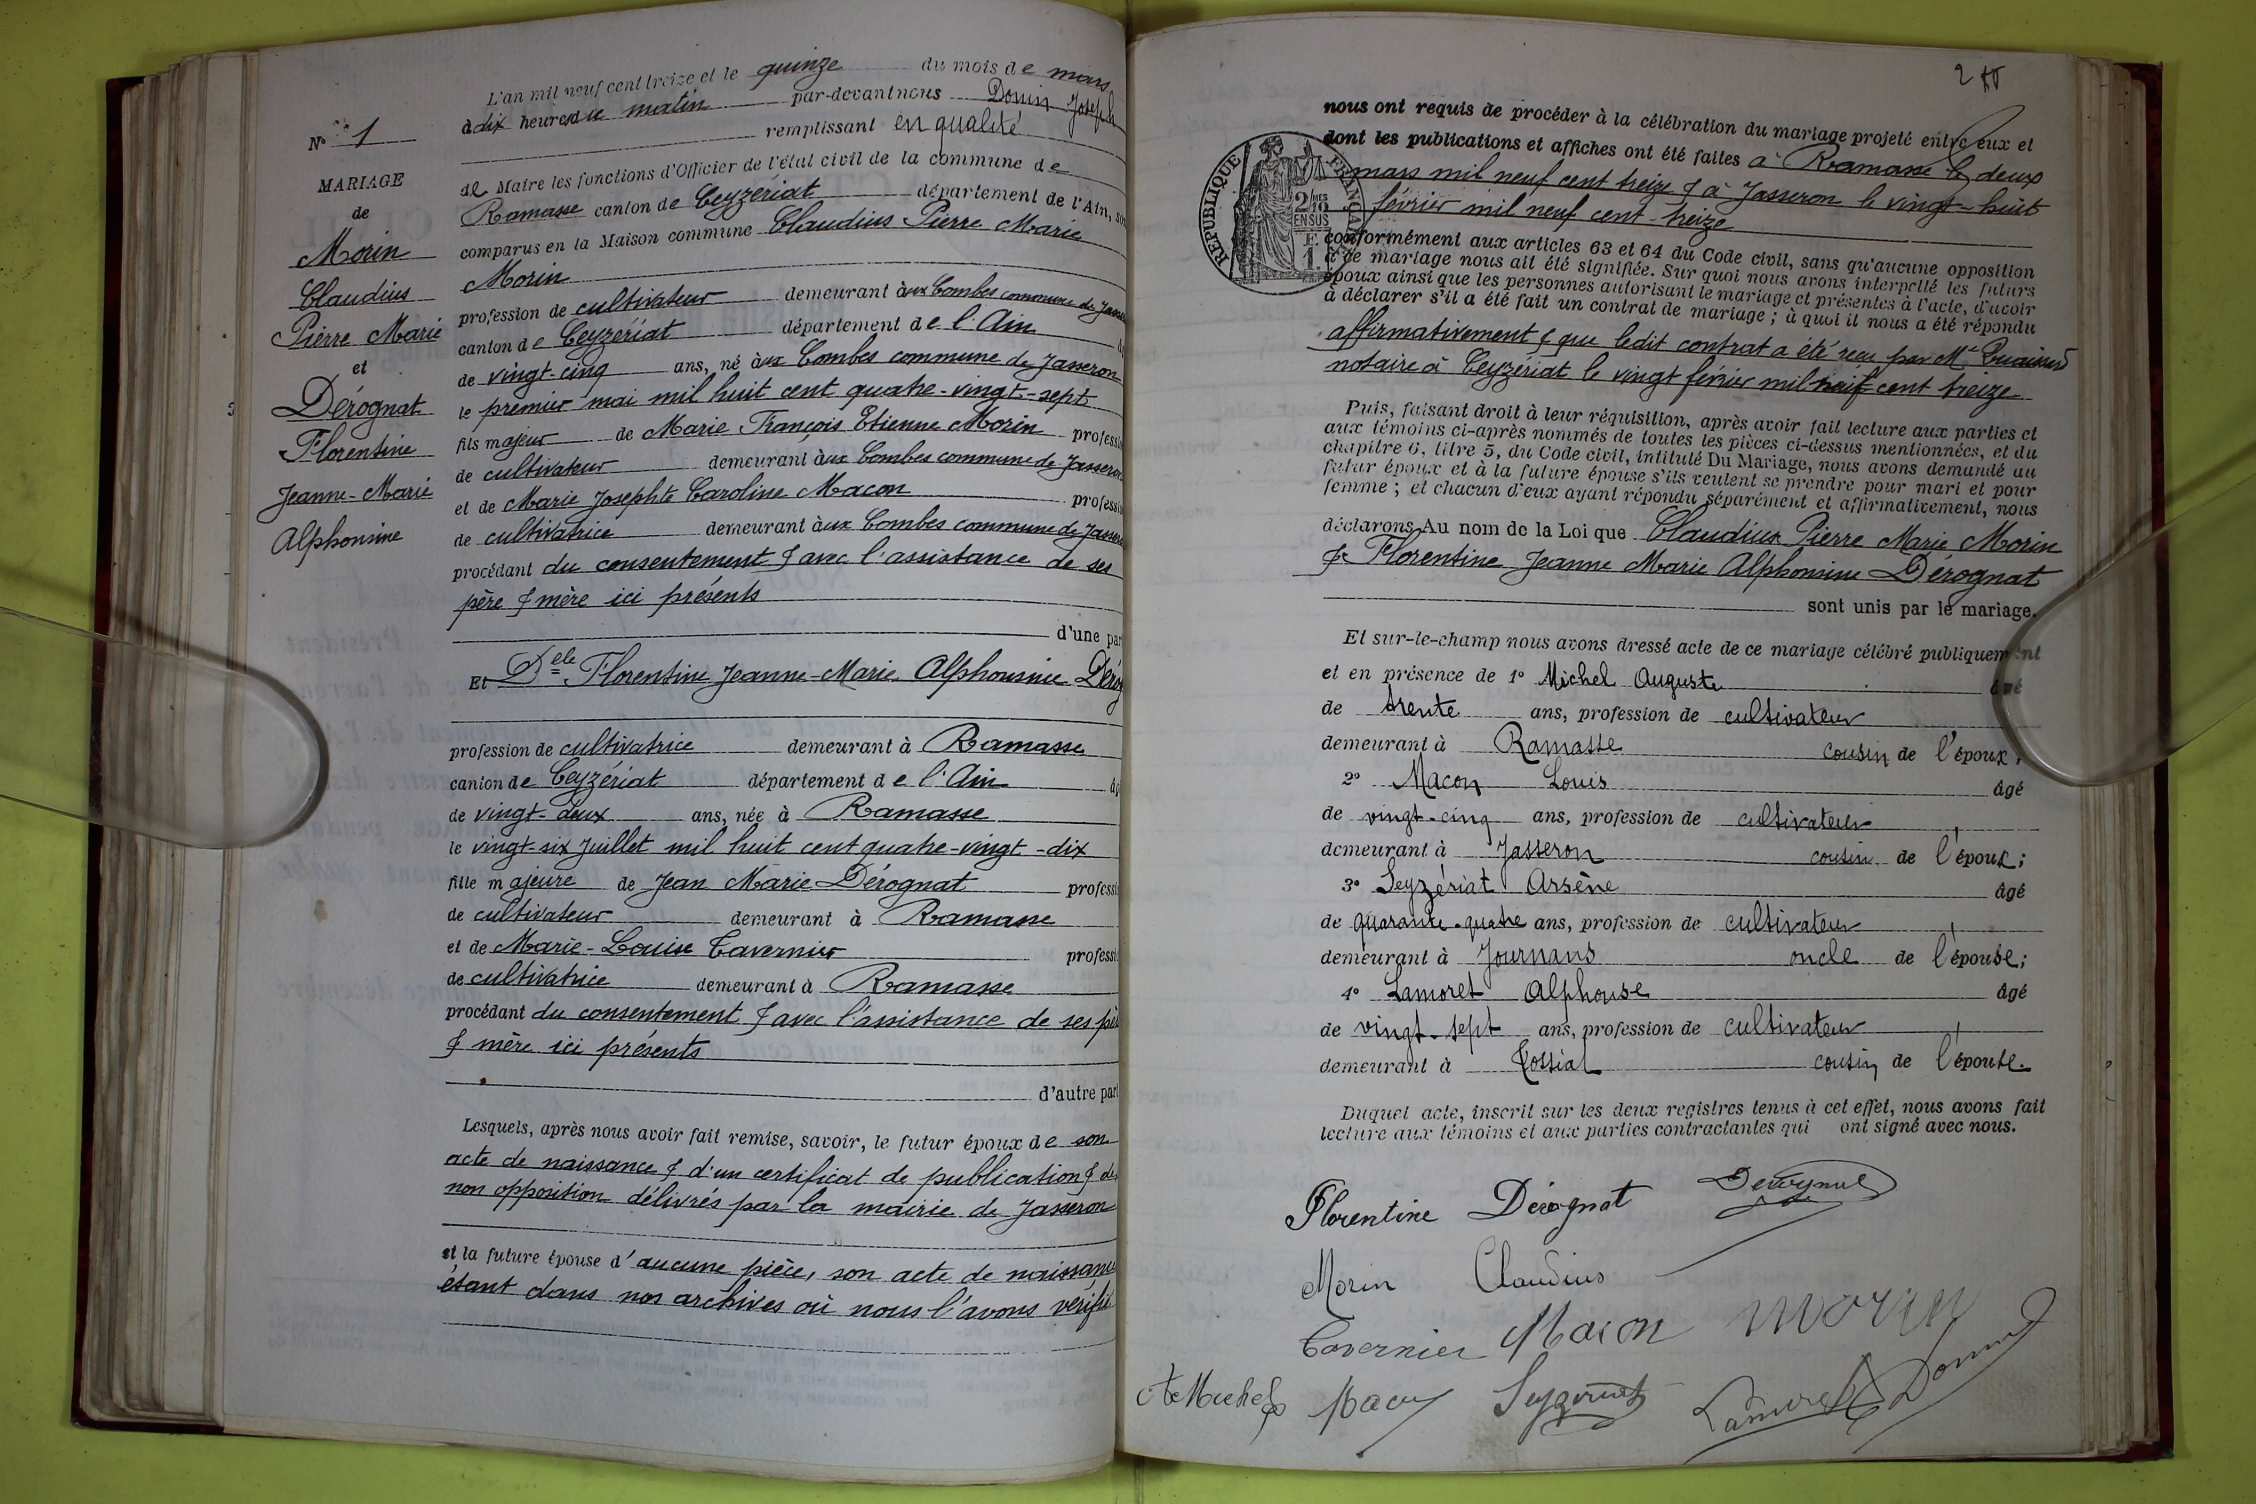 N° 1
MARIAGE
de
Morin
Claudius
Pierre Marie
et
Dérognat
Florentine
Jeanne-Marie
Alphonsine
L'an mil neuf cent treize et le quinze du mois de mars
à dix heures du matin par-devant nous Donin Joseph
remplissant en qualité
de Maire les fonctions d'Officier de l'état civil de la commune de
Ramasse canton de Ceyzériat département de l'Ain, son
comparus en la Maison commune Claudius Pierre Marie
Morin
profession de cultivateur demeurant aux Combes commune de Jasse
canton de Ceyzériat département de l'Ain
de vingt-cinq ans, né aux Combes commune de Jasseron
le premier mai mil huit cent quatre-vingt-sept
fils majeur de Marie François Etienne Morin professi
de cultivateur demeurant aux Combes commune de Jasseron
et de Marie Josephte Caroline Macon professi
de cultivatrice demeurant aux Combes commune de Jasser
procédant du consentement & avec l'assistance de ses
père & mère ici présents
d'une par
Et Delle Florentine Jeanne-Marie Alphonsine Dérog
profession de cultivatrice demeurant à Ramasse
canton de Ceyzériat département de l'Ain âg
de vingt-deux ans, née à Ramasse
le vingt-six Juillet mil huit cent quatre-vingt-dix
fille majeure de Jean Marie Dérognat professi
de cultivateur demeurant à Ramasse
et de Marie-Louise Tavernier professi
de cultivatrice demeurant à Ramasse
procédant du consentement & avec l'assistance de ses pèr
& mère ici présents
d'autre part
Lesquels, après nous avoir fait remise, savoir, le futur époux de son
acte de naissance & d'un certificat de publication & de
non opposition délivrés par la mairie de Jasseron
et la future épouse d'aucune pièce, son acte de naissance
étant dans nos archives où nous l'avons vérifié
2
nous ont requis de procéder à la célébration du mariage projeté entre eux et
dont les publications et affiches ont été faites à Ramasse le deux
mars mil neuf cent treize & à Jasseron le vingt-huit
février mil neuf cent treize
RÉPUBLIQUE FRANÇAISE
2/10MES
EN SUS
F.
1.
conformément aux articles 63 et 64 du Code civil, sans qu'aucune opposition
à ce mariage nous ait été signifiée. Sur quoi nous avons interpellé les futurs
époux ainsi que les personnes autorisant le mariage et présentes à l'acte, d'avoir
à déclarer s'il a été fait un contrat de mariage ; à quoi il nous a été répondu
affirmativement & que ledit contrat a été reçu par Me
notaire à Ceyzériat le vingt février mil neuf cent treize
Puis, faisant droit à leur réquisition, après avoir fait lecture aux parties et
aux témoins ci-après nommés de toutes les pièces ci-dessus mentionnées, et du
chapitre 6, titre 5, du Code civil, intitulé Du Mariage, nous avons demandé au
futur époux et à la future épouse s'ils veulent se prendre pour mari et pour
femme ; et chacun d'eux ayant répondu séparément et affirmativement, nous
déclarons Au nom de la Loi que Claudius Pierre Marie Morin
& Florentine Jeanne Marie Alphonsine Dérognat
sont unis par le mariage.
Et sur-le-champ nous avons dressé acte de ce mariage célébré publiquement
et en présence de 1° Michel Auguste âgé
de trente ans, profession de cultivateur
demeurant à Ramasse cousin de l'époux ;
2° Macon Louis âgé
de vingt-cinq ans, profession de cultivateur
demeurant à Jasseron cousin de l'époux ;
3° Seyzériat Arsène âgé
de quarante-quatre ans, profession de cultivateur
demeurant à Journans oncle de l'épouse ;
4° Lamoret Alphonse âgé
de vingt-sept ans, profession de cultivateur
demeurant à Tossiat cousin de l'épouse.
Duquel acte, inscrit sur les deux registres tenus à cet effet, nous avons fait
lecture aux témoins et aux parties contractantes qui ont signé avec nous.
Florentine Dérognat Derognat
Morin Claudius
Tavernier Macon Morin
Ate Michel Macon Seyzériat Lamoret Donin